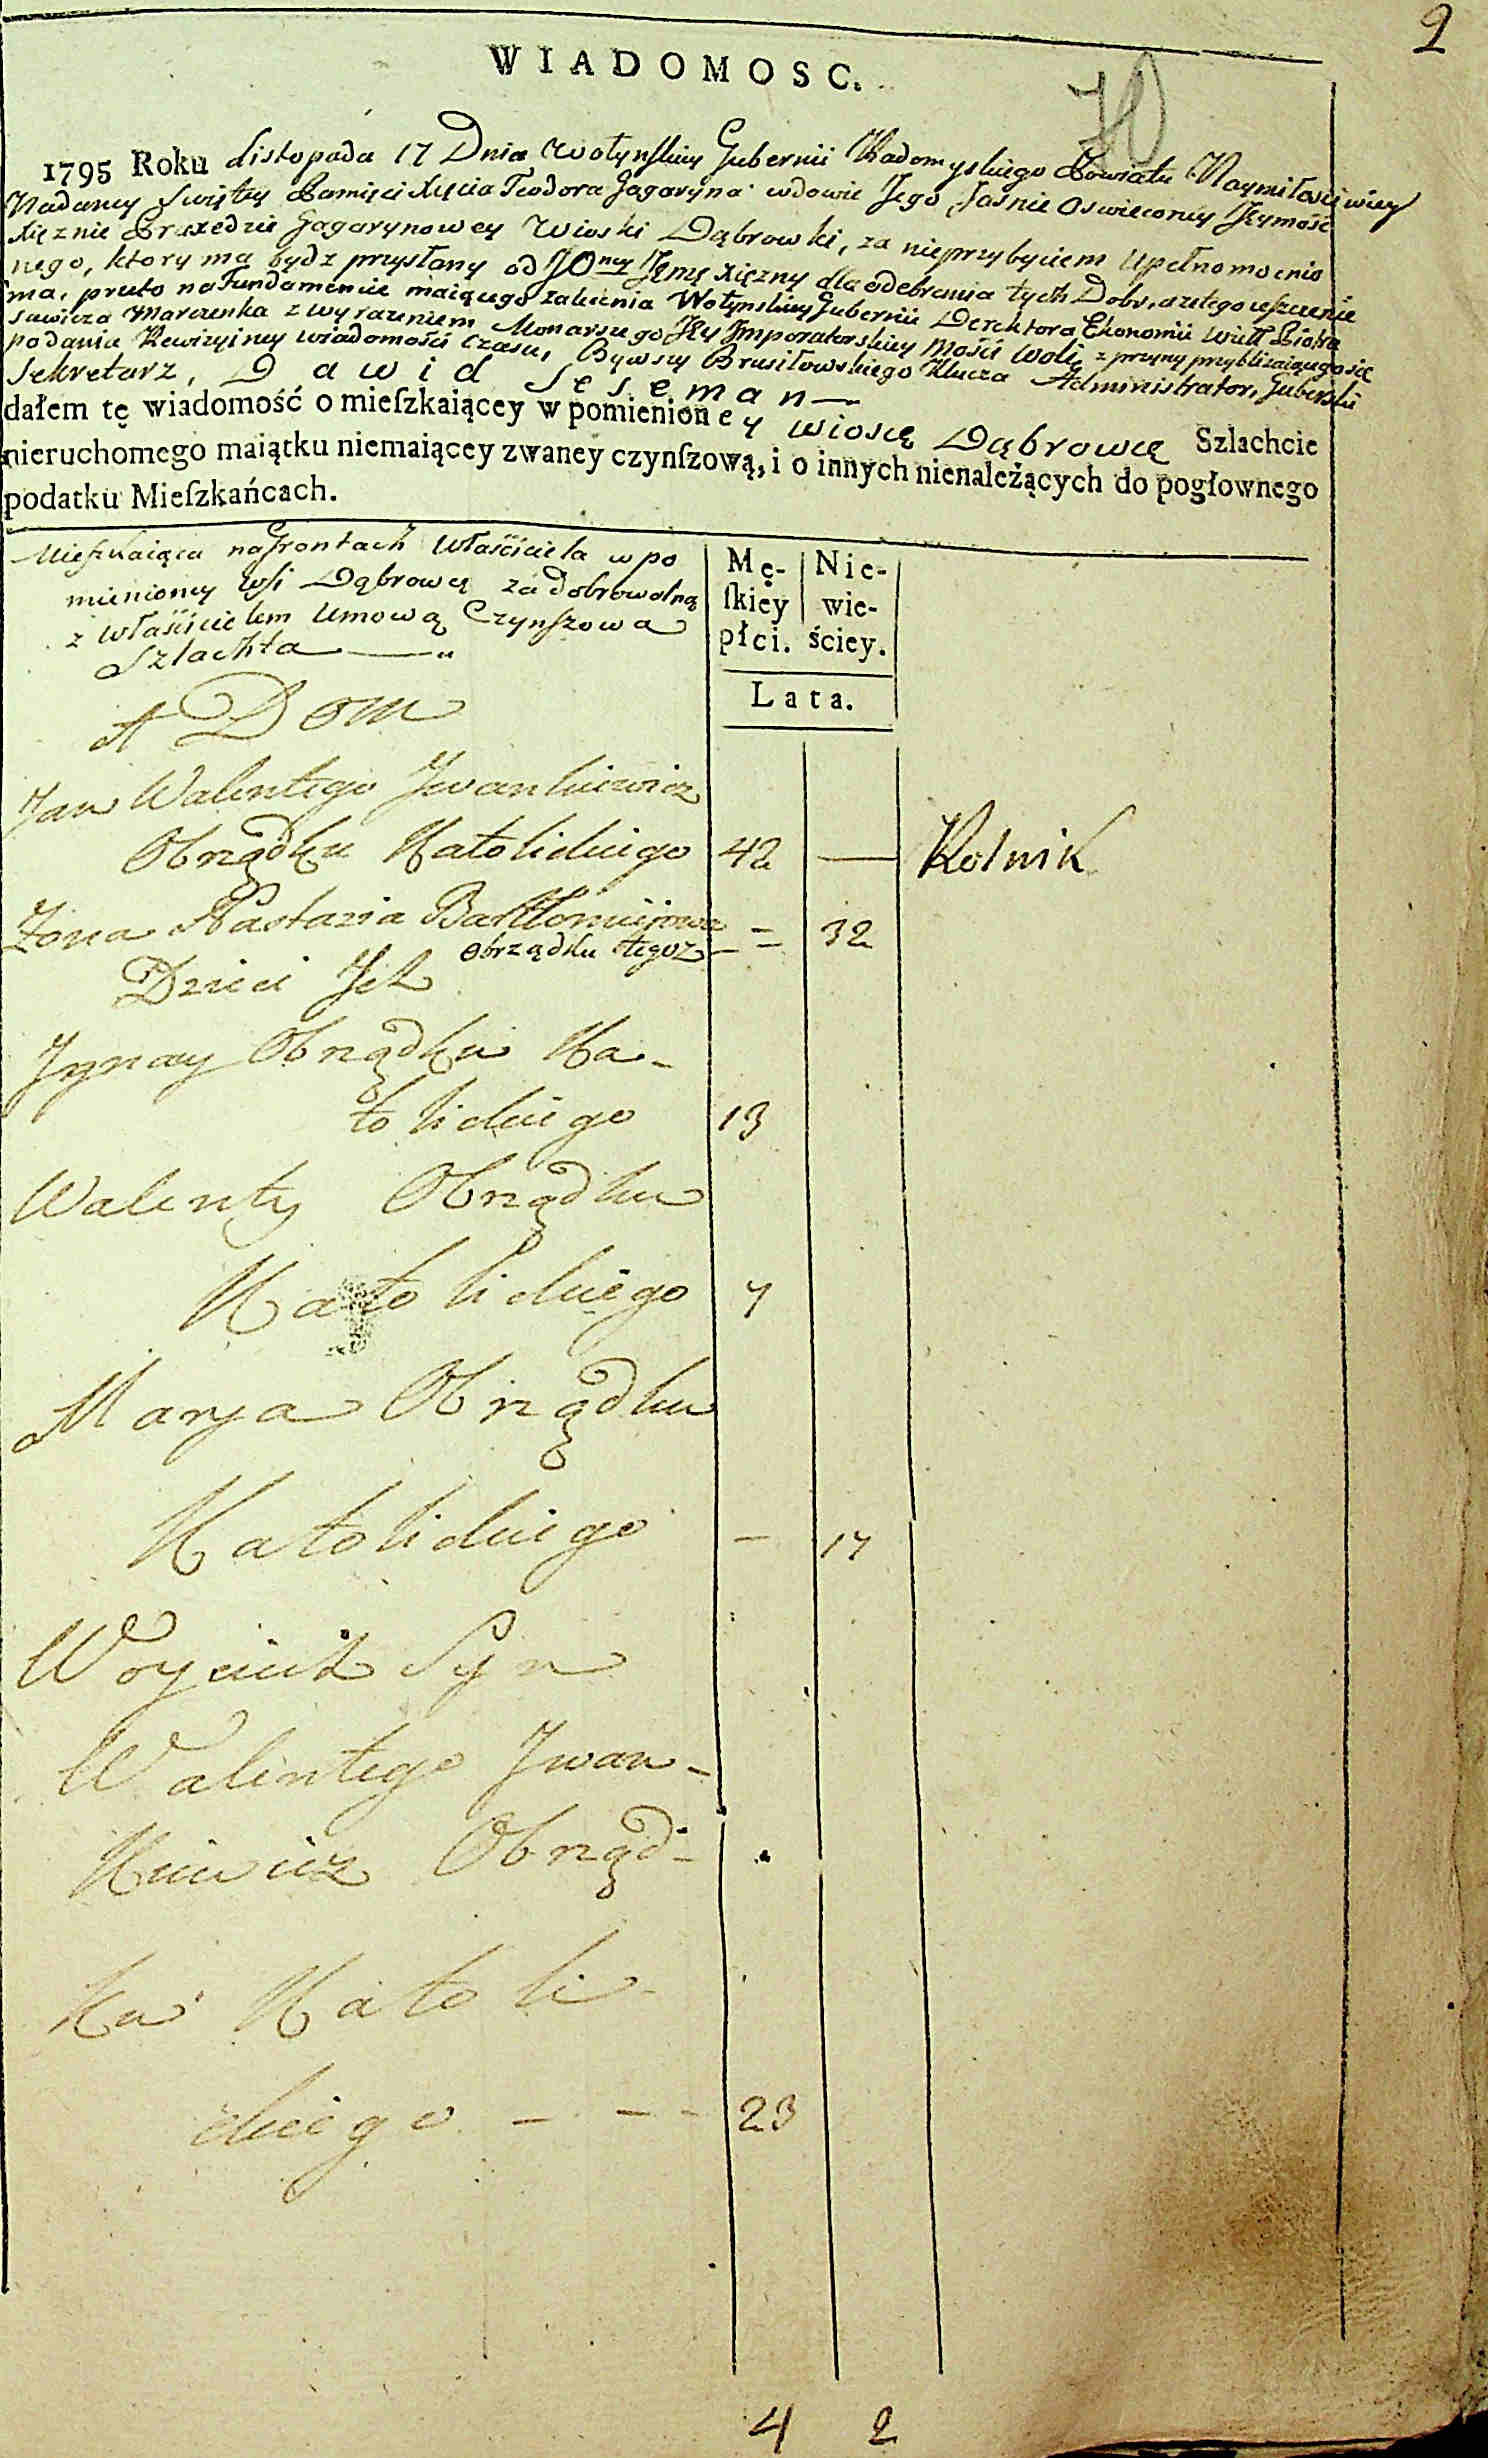 2
WIADOMOSC.
10
1795 Roku listopada 17 Dnia Wołynskiey Gubernii Radomyskiego Powiatu Naymiłościwiey
Nadaney Swiętey Pamięci Xięcia Teodora Gagaryna wdowie Jego Jasnie Oswieconey Jeymość
Xiężnie Praxedzie Gagarynowey Wioski Dąbrowki, za nieprzybyciem Upełnomocnio
nego, ktory ma bydz przysłany od JOney Jeymę Xiężny dla odebrania tych Dobr, a że tego ieszcze nie
ma, przeto na Fundamencie maiącego zalecenia Wołynskiey Gubernii Derektora Ekonomii Wiell Piotra
Sawicza Marczenka z wyrażeniem Monarszego Jey Imperatorskiey Mości Woli, z przyny przybliżaiącego się
podania Rewizyiney wiadomości czasu, Bywszy Brusiłowskiego Klucza Administrator, Guberski
Sekretarz, Dawid Seseman
dałem tę wiadomość o mieſzkaiącey w pomienioney wioscę Dąbrowcę Szlachcie
nieruchomego maiątku niemaiącey zwaney czynſzową, i o innych nienależących do pogłownego
podatku Mieſzkańcach.
Mieszkaiąca na grontach Właściciela w po
mienioney Wsi Dąbrowcę za dobrowolną
z Właścicielem Umową Czynszowa
Szlachta
Mę- Nie-
ſkiey wie-
płci. ściey.
Lata.
A Dom
Jan Walentego Jwankiewicz
Obrządku Katolickiego 42 — Rolnik
Żona Nastazia Bartłomiejowa
obrządku tegoż - = 32
Dzieci Jch
Jgnacy Obrządku Ka-
tolickiego 13
Walenty Obrządku
Katolickiego 7
Marya Obrządku
Katolickiego - 17
Woyciech Syn
Walentego Jwan-
kiewicz Obrząd-
ku Katoli-
ckiego - - - 23
4 2